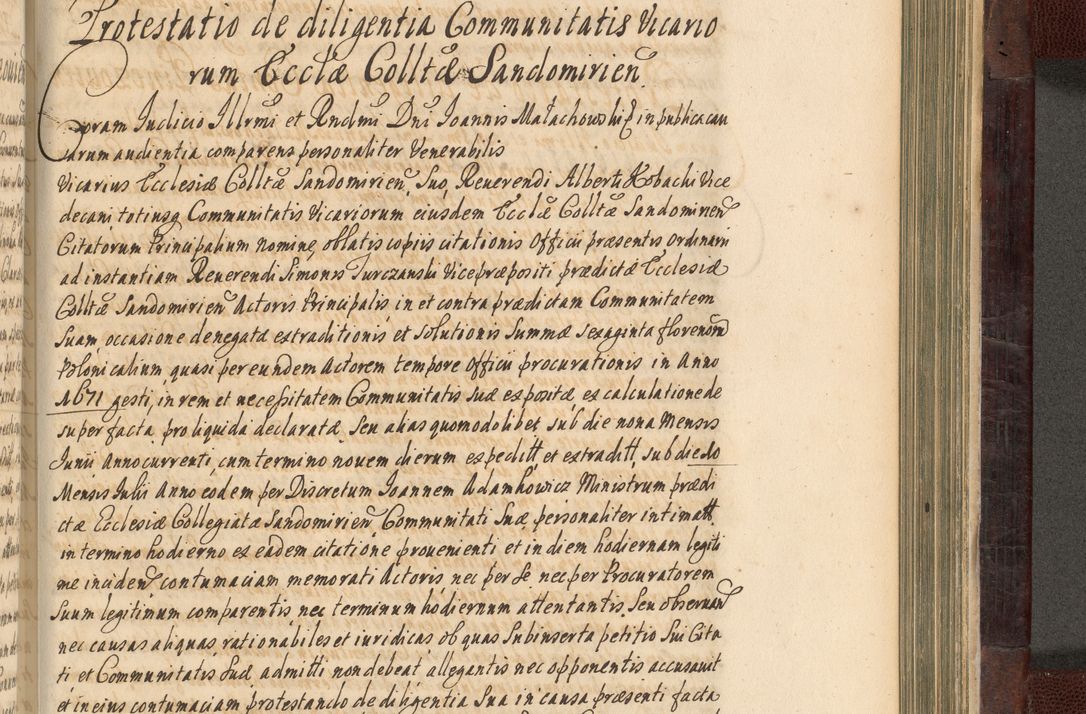 Protestatio de diligentia Communitatis Vicario
rum Eccłæ Colltæ Sandomirien
Coram Iudicio Illrmi et Rndmi Dni Ioannis Małachowski E in publica cau
sarum audientia comparens personaliter Venerabilis
Vicarius Ecclesiæ Colltæ Sandomirien, Suo, Reuerendi Alberti Kobachi Vice
decani totiusq Communitatis Vicariorum eiusdem Ecclæ Colltæ Sandomirien
Citatorum Principalium nomine, oblatis copiis citationis Officii præsentis Ordinarii
ad instantiam Reuerendi Simonis Turczanski Vicepræpositi prædictæ Ecclesiæ
Colltæ Sandomirien Actoris Principalis in et contra prædictam Communitatem
Suam, occasione denegatæ extraditionis et solutionis Summæ sexaginta florenorū
Polonicalium quasi per eundem Actorem tempore Officii procurationis in Anno
1671 gesti, in rem et necessitatem Communitatis suæ expositæ, ex calculatione de
super facta, pro liquida declaratæ. Seu alias quomodolibet sub die nona Mensis
Iunii Anno currenti, cum termino nouem dierum expeditt, et extraditt, sub die 2do
Mensis Iulii Anno eodem per Discretum Ioannem Adamkowicz Ministrum prædi
ctæ Ecclesiæ Collegiatæ Sandomirien Communitati Suæ personaliter intimatt
in termino hodierno ex eadem citatione prouenienti et in diem hodiernam legiti
me inciden, contumaciam memorati Actoris nec per se nec per Procuratorem
Suum legitimum comparentis nec terminum hodiernum attentantis, Seu obseruan
nec causas aliquas rationabiles et iuridicas ob quas Subinserta petitio Sui Cita
ti et Communitatis Suæ admitti non debeat allegantis nec opponentis accusauit
et in eius contumaciam protestando de diligentia Sua in causa præsenti facta